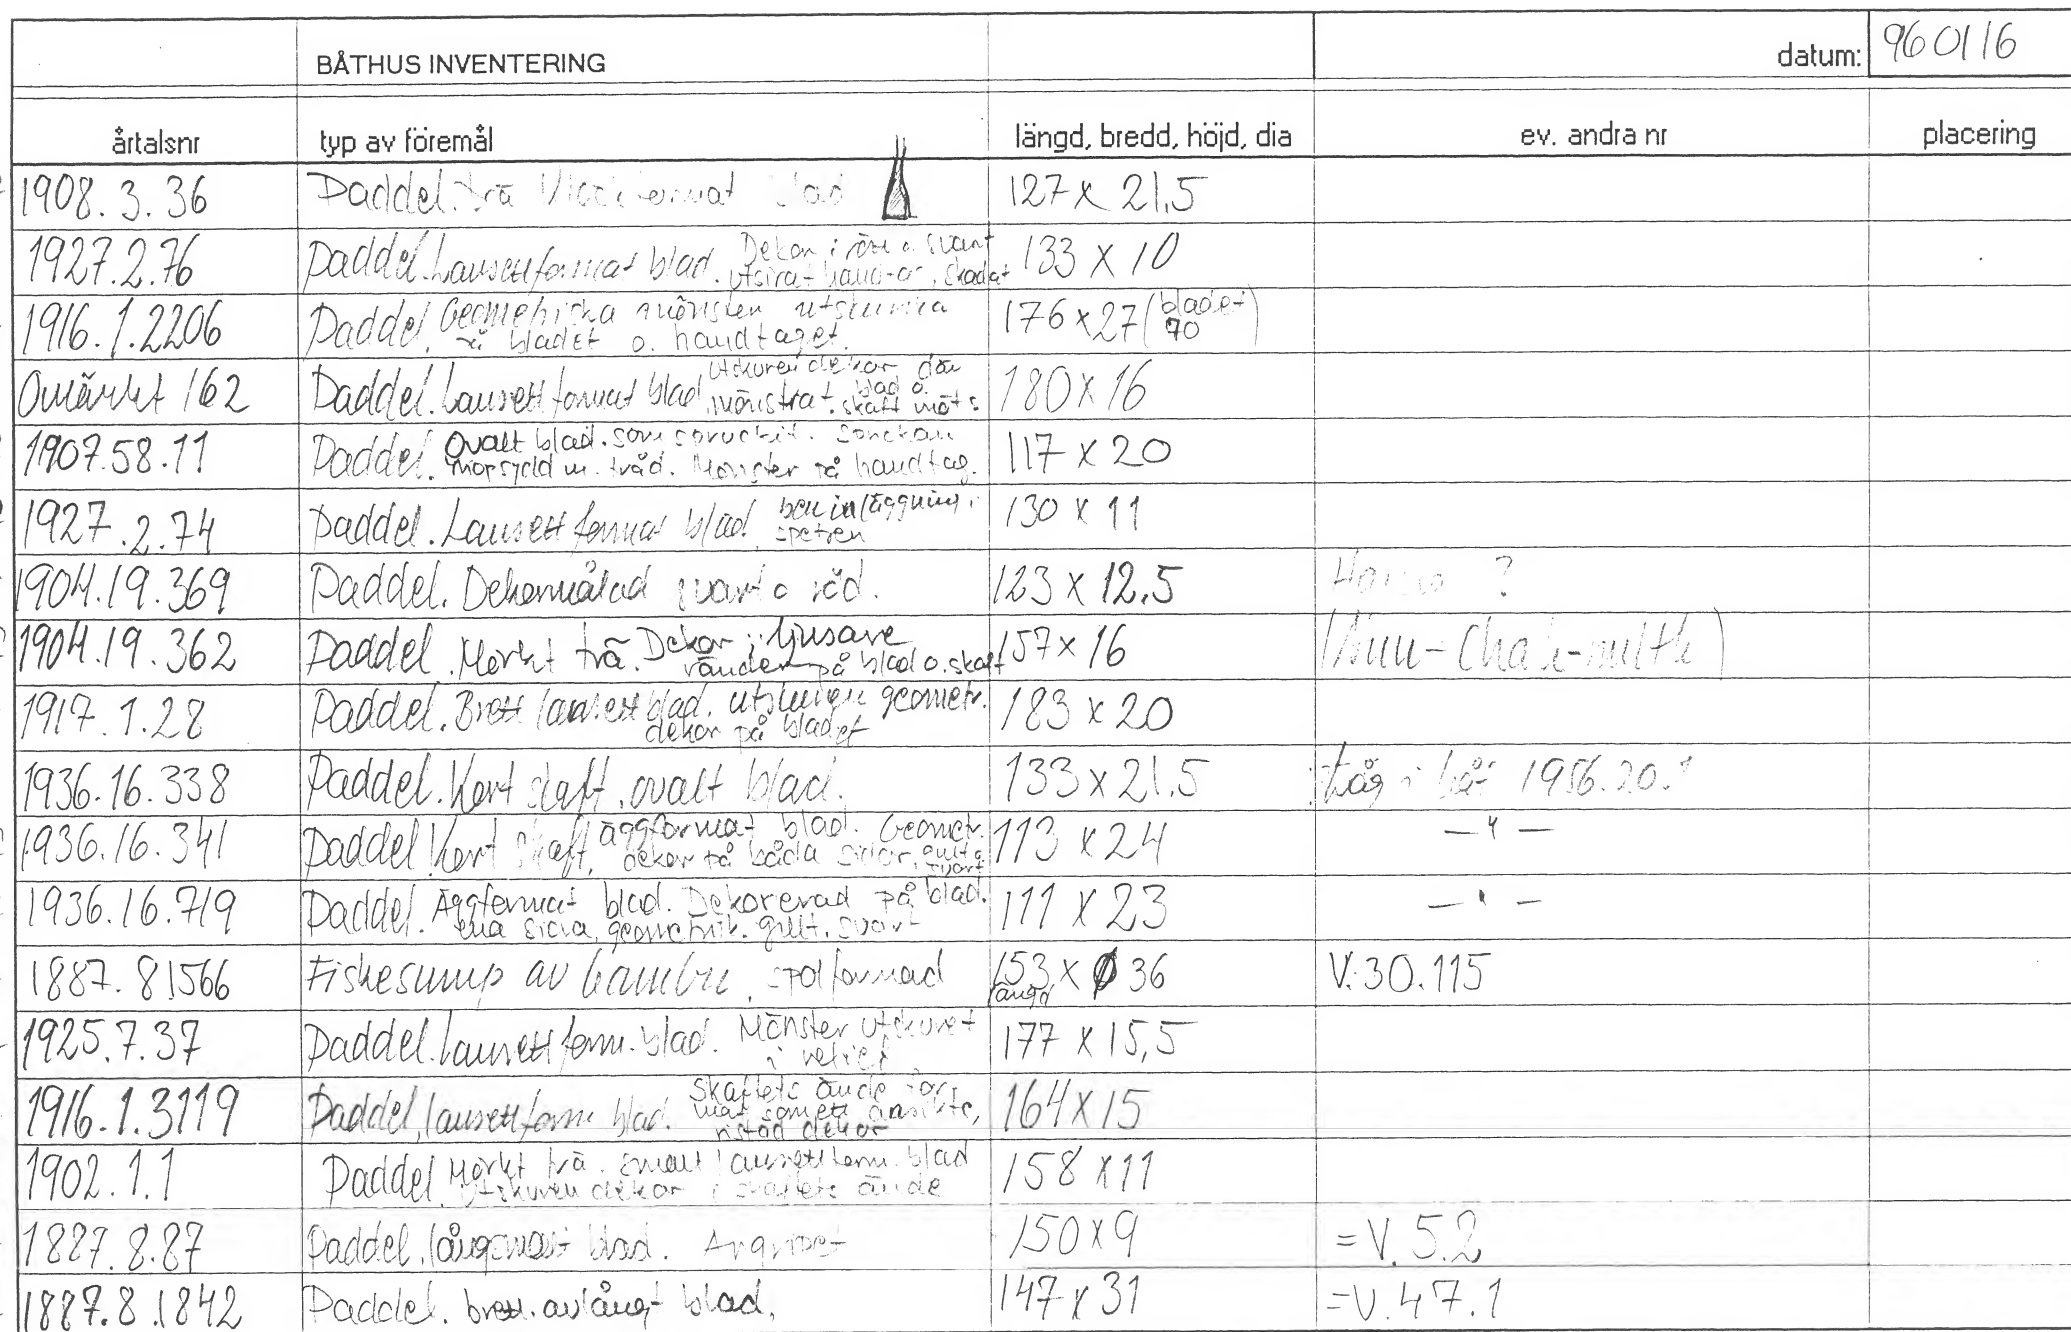 BÅTHUS INVENTERING datum: 960116
årtalsnr typ av föremål längd, bredd, höjd, dia ev. andra nr placering
1908.3.36 Paddel. trä blad 127 x 21,5
1927.2.76 Paddel. Lansettformat blad. Dekor i rött o. svart 133 x 10
utsirat hand-ar, skadat
1916.1.2206 Paddel. Geometriska mönster utskurna 176 x 27 (bladet
på bladet o. handtaget. 70)
Omärkt 162 Paddel. Lansettformat blad, utskuren dekor där 180 x 16
mönstrat. blad o. skaft möts
1907.58.11 Paddel. Ovalt blad. som spruckit. Sprickan 117 x 20
ihopsydd m. tråd. Mönster på handtag.
1927.2.74 Paddel. Lansettformat blad, beninläggning i 130 x 11
spetsen
1904.19.369 Paddel. Dekormålad svart o röd. 123 x 12,5 ?
1904.19.362 Paddel. Mörkt trä. Dekor i ljusare 157 x 16 (Nuu-Chah-nulth)
ränder på blad o. skaft
1917.1.28 Paddel. Brett lansettblad. utskuren geometr. 183 x 20
dekor på bladet
1936.16.338 Paddel. Kort skaft, ovalt blad. 133 x 21,5 Låg i båt 1956.20.1
1936.16.341 Paddel. Kort skaft, äggformat blad. Geometr. 113 x 24 —"—
dekor på båda sidor, gult o. svart
1936.16.719 Paddel. Äggformat blad. Dekorerad på blad. 111 x 23 —"—
ena sida, geometrik. gult, svart
1887.8.1566 Fiskesump av bambu, spolformad 153 x Ø 36 V.30.115
längd
1925.7.37 Paddel. lansettform. blad. Mönster utskuret 177 x 15,5
i relief
1916.1.3119 Paddel, lansettform blad. Skaftets ände for- 164 x 15
mat som ett ansikte,
ristad dekor
1902.1.1 Paddel. Mörkt trä. smalt lansettform. blad 158 x 11
Utskuren dekor i skaftets ände
1887.8.87 Paddel, långsmalt blad. Angripet 150 x 9 =V.5.2
1887.8.1842 Paddel. brett. avlångt blad, 147 x 31 =V.47.1